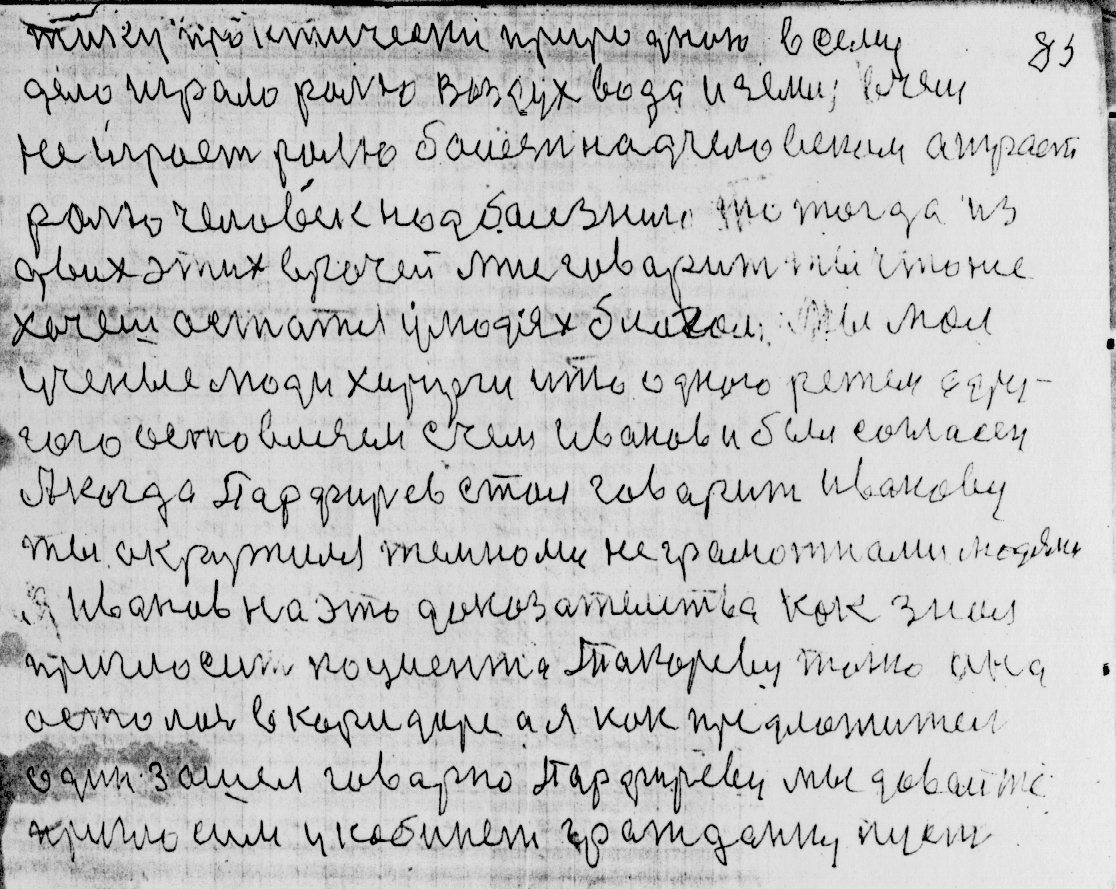 тику практически природною всему 83
дело играло ролю воздух вода и земл; в чем
не играет ролю болезн над человеком а играет
ролю человек над болезнию то тогда из
двих этих врачей мне говарит ты что не
хочеш остатся у людях биолог; Мы мол
ученые люди хирурги что одного режем дру-
гого остновляем с чем Иванов и был согласен
А когда Парфирев стал говарит Иванову
ты акружился темноми неграмотнами людями
я Иванов на это доказателтва как знал
пригласит поциента Токореву толко она
осталас в каридоре а я как предложител
один зашел говарю Парфиреву мы довайте
пригло сим у кабинет гражданку пуст